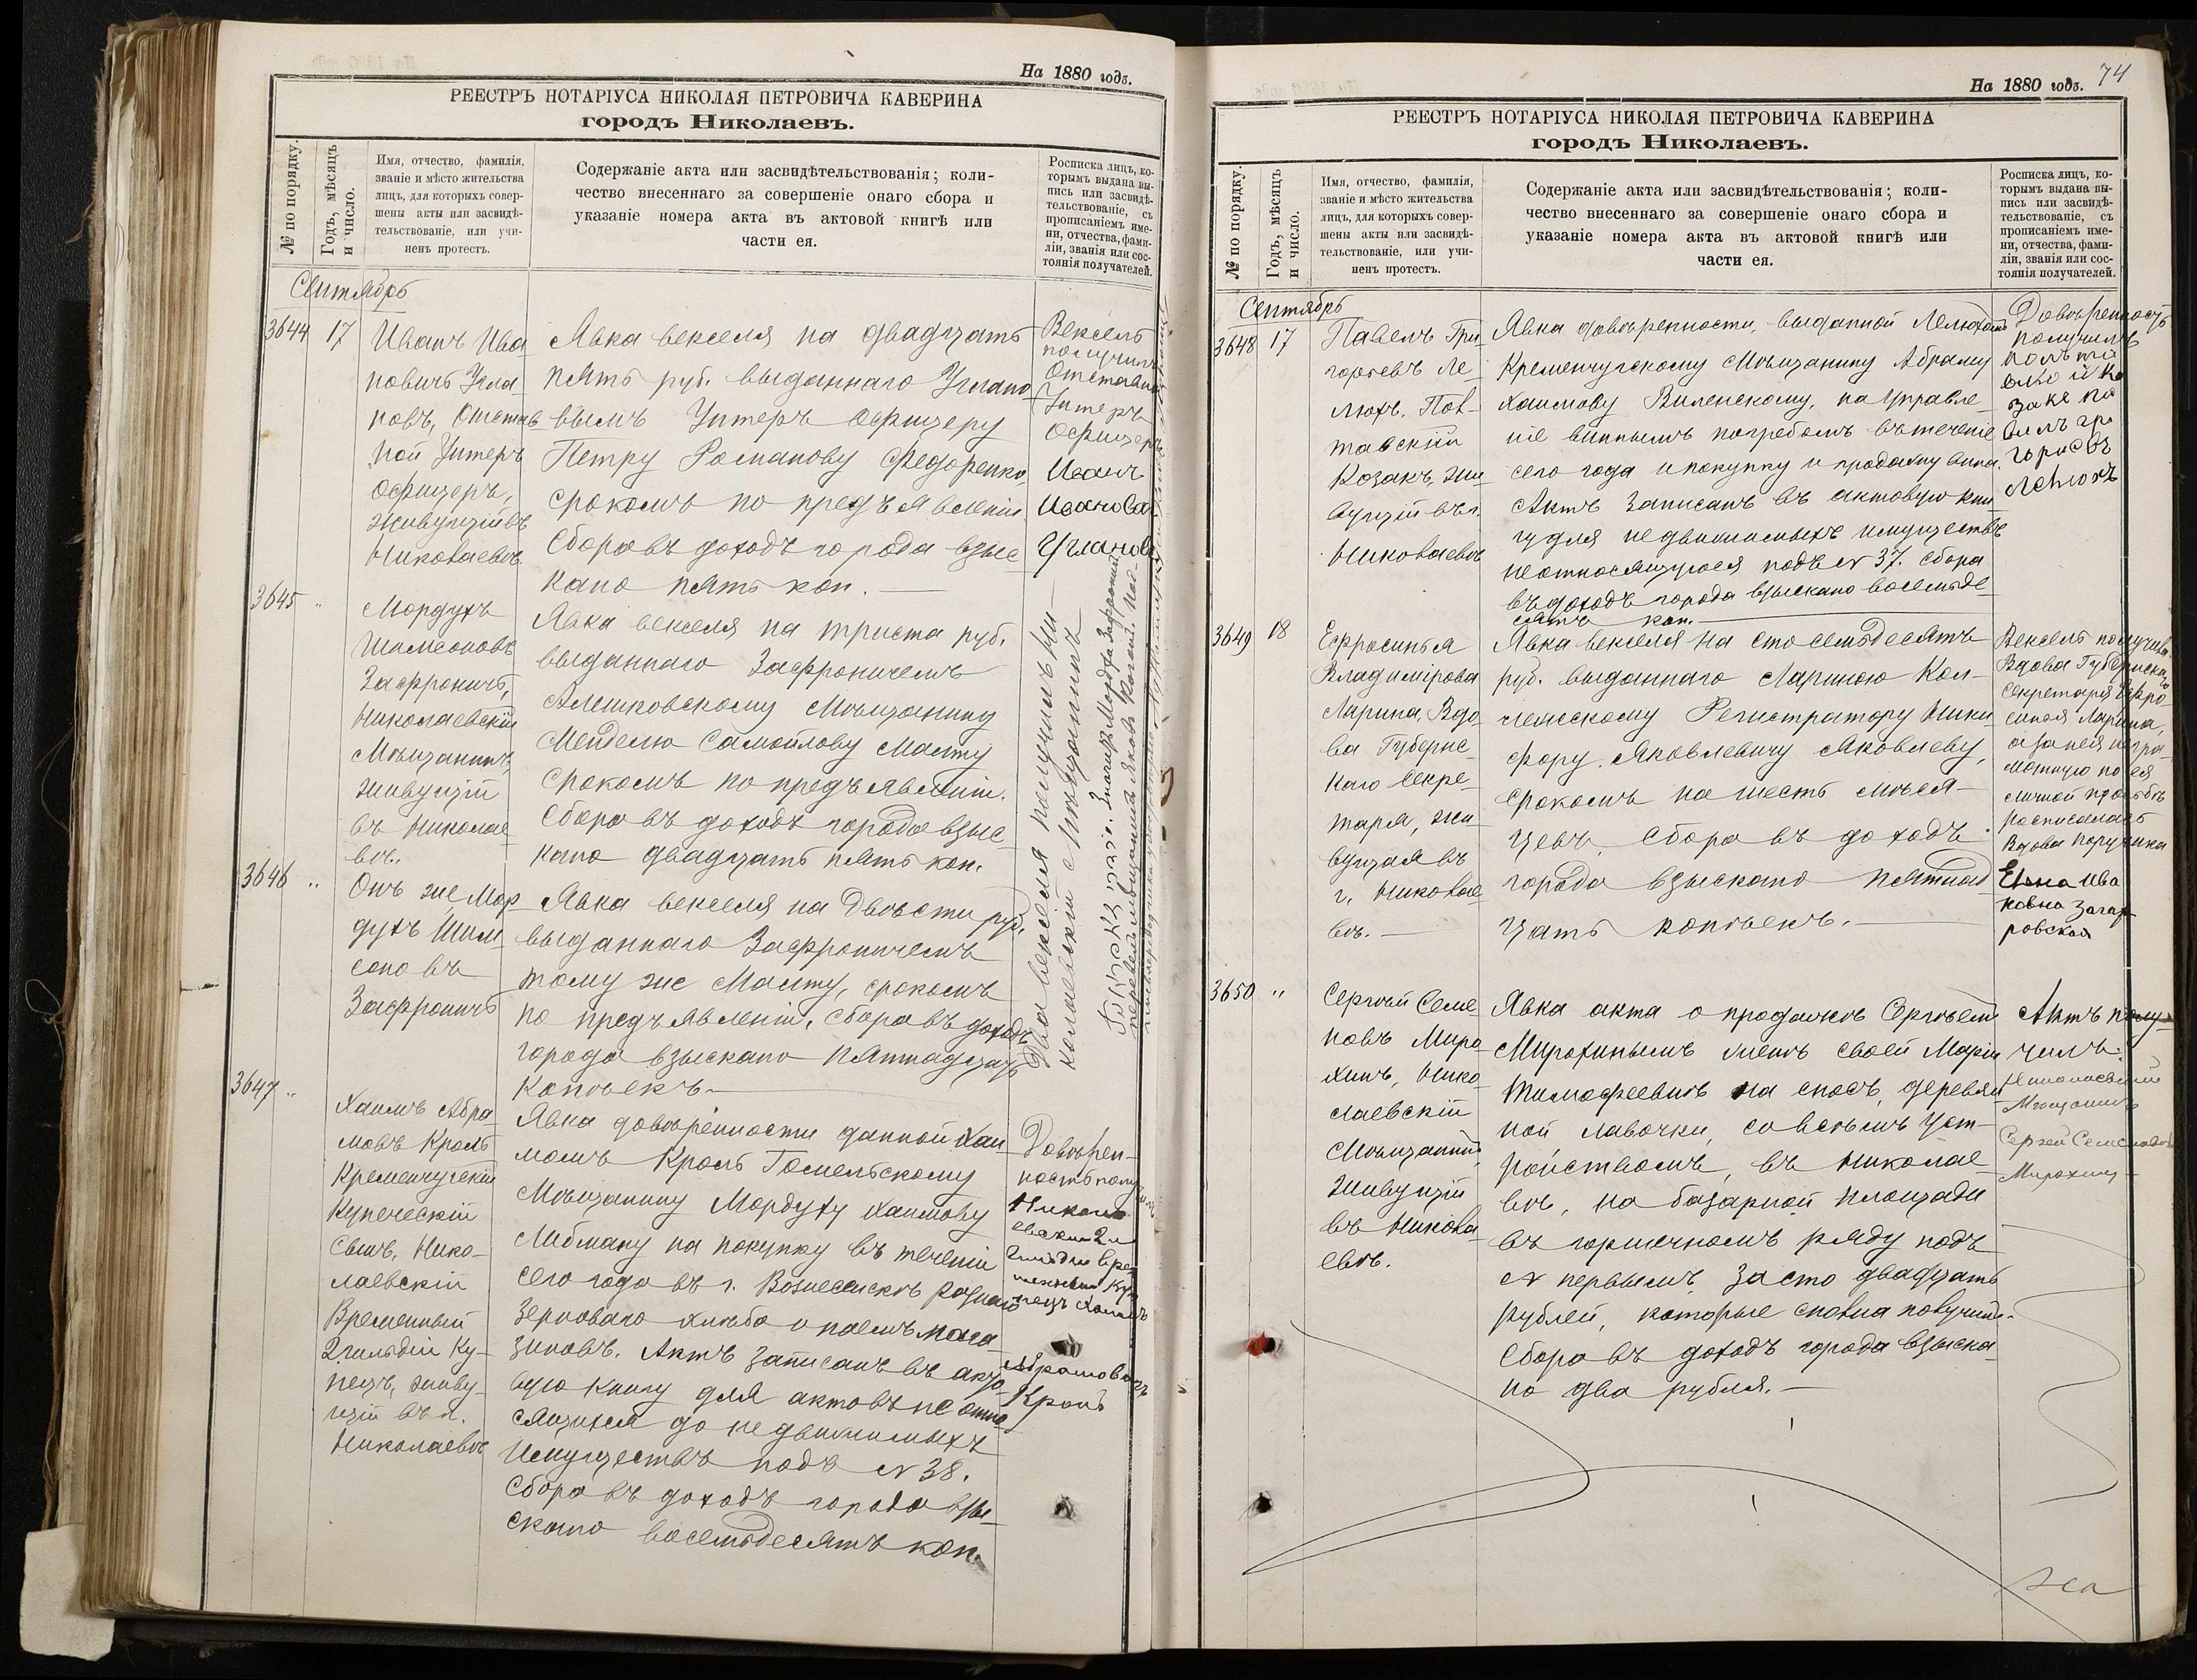 На 1880 годъ.
РЕЕСТРЪ НОТАРІУСА НИКОЛАЯ ПЕТРОВИЧА КАВЕРИНА
городъ Николаевъ.
№ по порядку.
Годъ, мѣсяцъ
и число.
Имя, отчество, фамилія,
званіе и мѣсто жительства
лицъ, для которыхъ совер-
шены акты или засвидѣ-
тельствованіе, или учи-
ненъ протестъ.
Содержаніе акта или засвидѣтельствованія; коли-
чество внесеннаго за совершеніе онаго сбора и
указаніе номера акта въ актовой книгѣ или
части ея.
Росписка лицъ, ко-
торымъ выдана вы-
пись или засвидѣ-
тельствованіе, съ
прописаніемъ име-
ни, отчества, фами-
ліи, званія или сос-
тоянія получателей.
Сентябрь
3644 17
Иванъ Ива
новичъ Угла
новъ, Отстав
ной Унтеръ
Офицеръ,
живущій въ
Николаевѣ.
Явка векселя на двадцать
пять руб. выданнаго Углано
вымъ Унтеръ Офицеру
Петру Романову Федоренко,
срокомъ по предъявленіи.
Сбора въ доходъ города взыс
кано пять коп.
Вексель
получилъ
Отставной
Унтеръ
Офицеръ
Иванъ
Иванова
Угланов
3645 "
Мордухъ
Шимсоновъ
Заффроничъ,
Николаевскій
Мѣщанинъ,
живущій
въ Николае
вѣ.
Явка векселя на триста руб.
выданнаго Заффроничемъ
Алешковскому Мѣщанину
Менделю Самойлову Малту
срокомъ по предъявленіи.
Сбора въ доходъ города взыс
кано двадцать пять коп.
3646 "
Онъ же, Мор
духъ Шим
соновъ
Заффроничъ
Явка векселя на двѣсти руб.
выданнаго Заффроничемъ
тому же Малту, срокомъ
по предъявленіи. Сбора въ доходъ
города взыскано пятнадцать
копѣекъ.
Два векселя получилъ Ни-
колаевскій Мѣщанинъ
3647 "
Хаимъ Абра
мовъ Кроль
Кременчугскій
Купеческій
Сынъ, Нико-
лаевскій
Временный
2 гильдіи Ку-
пецъ, живу-
щій въ г.
Николаевѣ
Явка довѣренности данной Хаи
момъ Кроль Гомельскому
Мѣщанину Мордуху Хаимову
Либману на покупку въ теченіи
сего года въ г. Вознесенскѣ разнаго
зерноваго хлѣба и наемъ мага-
зиновъ. Актъ записанъ въ акто-
вую книгу для актовъ не отно
сящихся до недвижимыхъ
имуществъ подъ № 38.
Сбора въ доходъ города взы-
скано восемьдесятъ коп.
Довѣрен-
ность получилъ
Никола
евскій 2й
Гильдіи вре
менный Ку
пецъ Хаимъ
Абрамовичъ
Кроль
На 1880 годъ. 74
РЕЕСТРЪ НОТАРІУСА НИКОЛАЯ ПЕТРОВИЧА КАВЕРИНА
городъ Николаевъ.
№ по порядку.
Годъ, мѣсяцъ
и число.
Имя, отчество, фамилія,
званіе и мѣсто жительства
лицъ, для которыхъ совер-
шены акты или засвидѣ-
тельствованіе, или учи-
ненъ протестъ.
Содержаніе акта или засвидѣтельствованія; коли-
чество внесеннаго за совершеніе онаго сбора и
указаніе номера акта въ актовой книгѣ или
части ея.
Росписка лицъ, ко-
торымъ выдана вы-
пись или засвидѣ-
тельствованіе, съ
прописаніемъ име-
ни, отчества, фами-
ліи, званія или сос-
тоянія получателей.
Сентябрь
3648 17
Павелъ Гри-
горьевъ Ле-
люхъ, Пол-
тавскій
Козакъ, жи
вущій въ г.
Николаевѣ
Явка довѣренности, выданной Лелюхомъ
Кременчугскому Мѣщанину Абраму
Хаимову Виленскому, на управле-
ніе виннымъ погребомъ въ теченіе
сего года и покупку и продажу вина.
Актъ записанъ въ актовую кни
гу для недвижимыхъ имуществъ
не относящуюся подъ № 37. Сбора
въ доходъ города взыскано восемьде
сятъ коп.
Довѣренность
получилъ
3649 18
Ефросинья
Владимірова
Ларина, Вдо
ва Губернс
каго Секре-
таря, жи-
вущая въ
г. Николае
вѣ.
Явка векселя на сто семьдесятъ
руб. выданнаго Лариною Кол-
лежскому Регистратору Ники
фору Яковлевичу Яковлеву,
срокомъ на шесть мѣся-
цевъ. Сбора въ доходъ
города взыскано пятнад
цать копѣекъ.
Вексель получила
Вдова Губернска
Секретаря Ефро-
синья Ларина,
а за нея негра-
мотную по ея
личной просьбѣ
росписалась
Вдова Поручика
Елена Ива
новна Загар
ровская
3650 "
Сергѣй Семе
новъ Миро
хинъ, Нико
лаевскій
Мѣщанинъ,
живущій
въ Никола
евѣ.
Явка акта о продажѣ Сергѣемъ
Мирохинымъ женѣ своей Маріи
Тимофеевнѣ на сносъ, деревян
ной лавочки, со всѣмъ уст-
ройствомъ, въ Николае
вѣ, на базарной площади
въ горшечномъ ряду подъ
№ первымъ, за сто двадцать
рублей, которые сполна получилъ.
Сбора въ доходъ города взыска-
но два рубля.
Актъ полу-
чилъ.
Николаевскій
Мѣщанинъ
Сергей Семеновъ
Мирохинъ